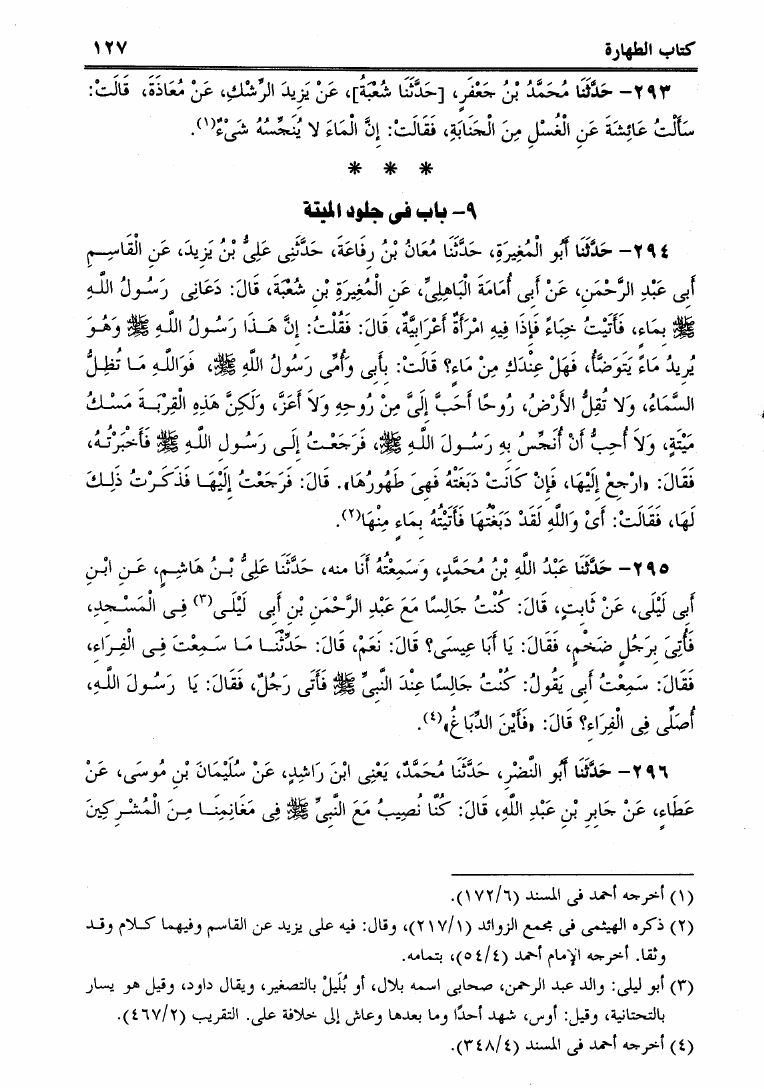 كتاب الطهارة ١٢٧
٢٩٣- حَدَّثَنَا مُحَمَّدُ بْنُ جَعْفَرٍ، [حَدَّثَنَا شُعْبَةُ]، عَنْ يَزِيدَ الرِّشْكِ، عَنْ مُعَاذَةَ، قَالَتْ:
سَأَلْتُ عَائِشَةَ عَنِ الْغُسْلِ مِنَ الْجَنَابَةِ، فَقَالَتْ: إِنَّ الْمَاءَ لا يُنَجِّسُهُ شَىْءٌ(١).
* * *
٩- باب فى جلود الميتة
٢٩٤- حَدَّثَنَا أَبُو الْمُغِيرَةِ، حَدَّثَنَا مُعَانُ بْنُ رِفَاعَةَ، حَدَّثَنِى عَلِىُّ بْنُ يَزِيدَ، عَنِ الْقَاسِمِ
أَبِى عَبْدِ الرَّحْمَنِ، عَنْ أَبِى أُمَامَةَ الْبَاهِلِىِّ، عَنِ الْمُغِيرَةِ بْنِ شُعْبَةَ، قَالَ: دَعَانِى رَسُولُ اللَّهِ
ﷺ بِمَاءٍ، فَأَتَيْتُ خِبَاءً فَإِذَا فِيهِ امْرَأَةٌ أَعْرَابِيَّةٌ، قَالَ: فَقُلْتُ: إِنَّ هَذَا رَسُولُ اللَّهِ ﷺ وَهُوَ
يُرِيدُ مَاءً يَتَوَضَّأُ، فَهَلْ عِنْدَكِ مِنْ مَاءٍ؟ قَالَتْ: بِأَبِى وَأُمِّى رَسُولُ اللَّهِ ﷺ، فَوَاللَّهِ مَا تُظِلُّ
السَّمَاءُ، وَلا تُقِلُّ الأَرْضُ، رُوحًا أَحَبَّ إِلَىَّ مِنْ رُوحِهِ وَلاَ أَعَزَّ، وَلَكِنَّ هَذِهِ الْقِرْبَةَ مَسْكُ
مَيْتَةٍ، وَلاَ أُحِبُّ أَنْ أُنَجِّسُ بِهِ رَسُولَ اللَّهِ ﷺ، فَرَجَعْتُ إِلَى رَسُولِ اللَّهِ ﷺ فَأَخْبَرْتُهُ،
فَقَالَ: «ارْجِعْ إِلَيْهَا، فَإِنْ كَانَتْ دَبَغَتْهُ فَهِىَ طَهُورُهَا». قَالَ: فَرَجَعْتُ إِلَيْهَا فَذَكَرْتُ ذَلِكَ
لَهَا، فَقَالَتْ: أَىْ وَاللَّهِ لَقَدْ دَبَغْتُهَا فَأَتَيْتُهُ بِمَاءٍ مِنْهَا(٢).
٢٩٥- حَدَّثَنَا عَبْدُ اللَّهِ بْنُ مُحَمَّدٍ، وَسَمِعْتُهُ أَنَا منه، حَدَّثَنَا عَلِىُّ بْنُ هَاشِمٍ، عَنِ ابْنِ
أَبِى لَيْلَى، عَنْ ثَابِتٍ، قَالَ: كُنْتُ جَالِسًا مَعَ عَبْدِ الرَّحْمَنِ بْنِ أَبِى لَيْلَى(٣) فِى الْمَسْجِدِ،
فَأُتِىَ بِرَجُلٍ ضَخْمٍ، فَقَالَ: يَا أَبَا عِيسَى؟ قَالَ: نَعَمْ، قَالَ: حَدِّثْنَا مَا سَمِعْتَ فِى الْفِرَاءِ،
فَقَالَ: سَمِعْتُ أَبِى يَقُولُ: كُنْتُ جَالِسًا عِنْدَ النَّبِىِّ ﷺ فَأَتَى رَجُلٌ، فَقَالَ: يَا رَسُولَ اللَّهِ،
أُصَلِّى فِى الْفِرَاءِ؟ قَالَ: «فَأَيْنَ الدِّبَاغُ»(٤).
٢٩٦- حَدَّثَنَا أَبُو النَّضْرِ، حَدَّثَنَا مُحَمَّدٌ، يَعْنِى ابْنَ رَاشِدٍ، عَنْ سُلَيْمَانَ بْنِ مُوسَى، عَنْ
عَطَاءٍ، عَنْ جَابِرِ بْنِ عَبْدِ اللَّهِ، قَالَ: كُنَّا نُصِيبُ مَعَ النَّبِىِّ ﷺ فِى مَغَانِمِنَا مِنَ الْمُشْرِكِينَ
(١) أخرجه أحمد فى المسند (١٧٢/٦).
(٢) ذكره الهيثمى فى مجمع الزوائد (٢١٧/١)، وقال: فيه على يزيد عن القاسم وفيهما كلام وقد
وثقا. أخرجه الإمام أحمد (٥٤/٤)، بتمامه.
(٣) أبو ليلى: والد عبد الرحمن، صحابى اسمه بلال، أو بُلَيلْ بالتصغير، ويقال داود، وقيل هو يسار
بالتحتانية، وقيل: أوس، شهد أحدًا وما بعدها وعاش إلى خلافة على. التقريب (٤٦٧/٢).
(٤) أخرجه أحمد فى المسند (٣٤٨/٤).